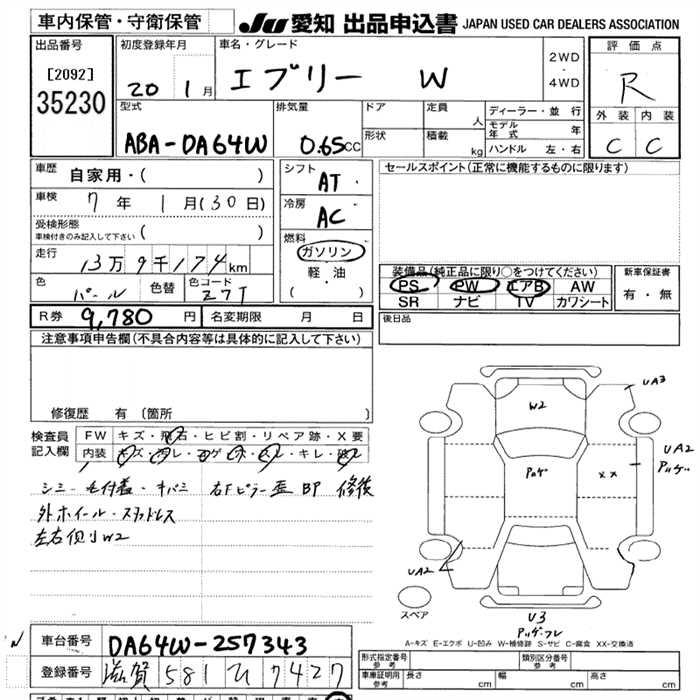 車内保管・守衛保管
JU 愛知 出品申込書 JAPAN USED CAR DEALERS ASSOCIATION
出品番号
[2092]
35230
初度登録年月
20 1月
車名・グレード
エブリー W
2WD
・
4WD
評価点
R
外装 内装
C C
型式
ABA-DA64W
排気量
0.65CC
ドア
形状
定員
人
積載
kg
ディーラー・並行
モデル年式 年
ハンドル 左・右
車歴
自家用・( )
車検
7年 1月(30日)
受検形態
車検付きのみ記入して下さい ( )
走行
13万9千174km
色
パール
色替
色コード
Z7T
シフト
AT
冷房
AC
燃料
ガソリン
軽・油
( )
セールスポイント(正常に機能するものに限ります)
装備品(純正品に限り○をつけてください)
PS PW エアB AW
SR ナビ TV カワシート
新車保証書
有・無
R券 9,780円 名変期限 月 日
後日品
注意事項申告欄(不具合内容等は具体的に記入して下さい)
修復歴 有(箇所 )
検査員
記入欄
FW キズ・飛石・ヒビ割・リペア跡・X要
内装
シミ・毛付着・キバミ 右Fピラー歪 BP 修復
外ホイール・スタッドレス
左右側リW2
W2
UA3
UA2
XX
UA2
スペア
U3
A-キズ E-エクボ U-凹み W-補修跡 S-サビ C-腐食 XX-交換済
車台番号 DA64W-257343
登録番号 滋賀 581 ひ 7427
形式指定番号
参考
類別区分番号
参考
車庫証明用
参考
長さ cm 幅 cm 高さ cm